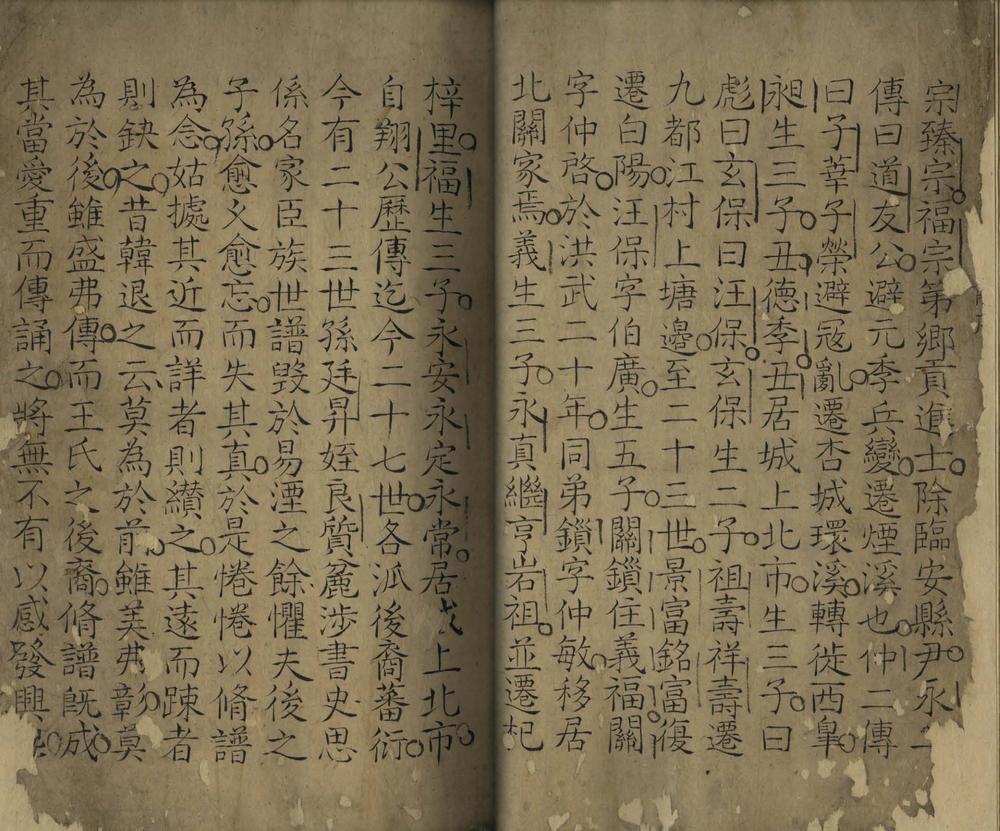 宗臻宗福宗第鄉貢進士除臨安縣尹永二
傳曰道友公避元季兵變遷煙溪也仲二傳
曰子華子榮避冦亂遷杏城環溪轉徙西臯
昶生三子丑德季丑居城上北市生三子曰
彪曰玄保曰汪保玄保生二子祖壽祥壽遷
九都江村上塘邉至二十三世景富銘富復
遷白陽汪保字伯廣生五子關鎖住義福關
字仲啓於洪武二十年同弟鎖字仲敏移居
北關家焉義生三子永真繼亨岩祖並遷杞
梓里福生三子永安永定永常居城上北市
自翔公歷傳迄今二十七世各派後裔蕃衍
今有二十三世孫廷昇姪良質麄涉書史思
係名家臣族世譜毀於易湮之餘懼夫後之
子孫愈乆愈忘而失其真於是惓惓以脩譜
為念姑據其近而詳者則纉之其遠而踈者
則缺之昔韓退之云莫為於前雖羙弗彰莫
為於後雖盛弗傳而王氏之後裔脩譜既成
其當愛重而傳誦之將無不有以感發興